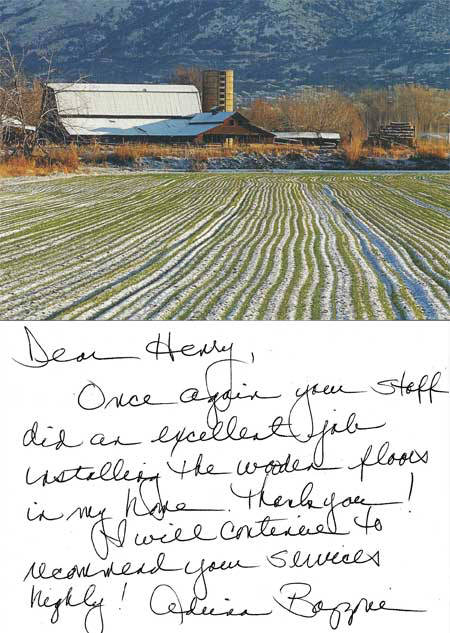 Dear Henry,
Once again your staff
did an excellent job
installing the wooden floors
in my home. Thank you!
I will continue to
recommend your services
highly!